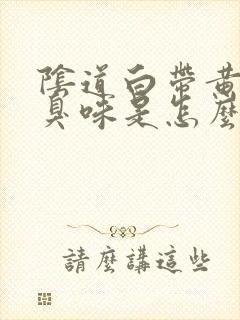 陰道白帶黃
臭味是怎麼
請麼講這些